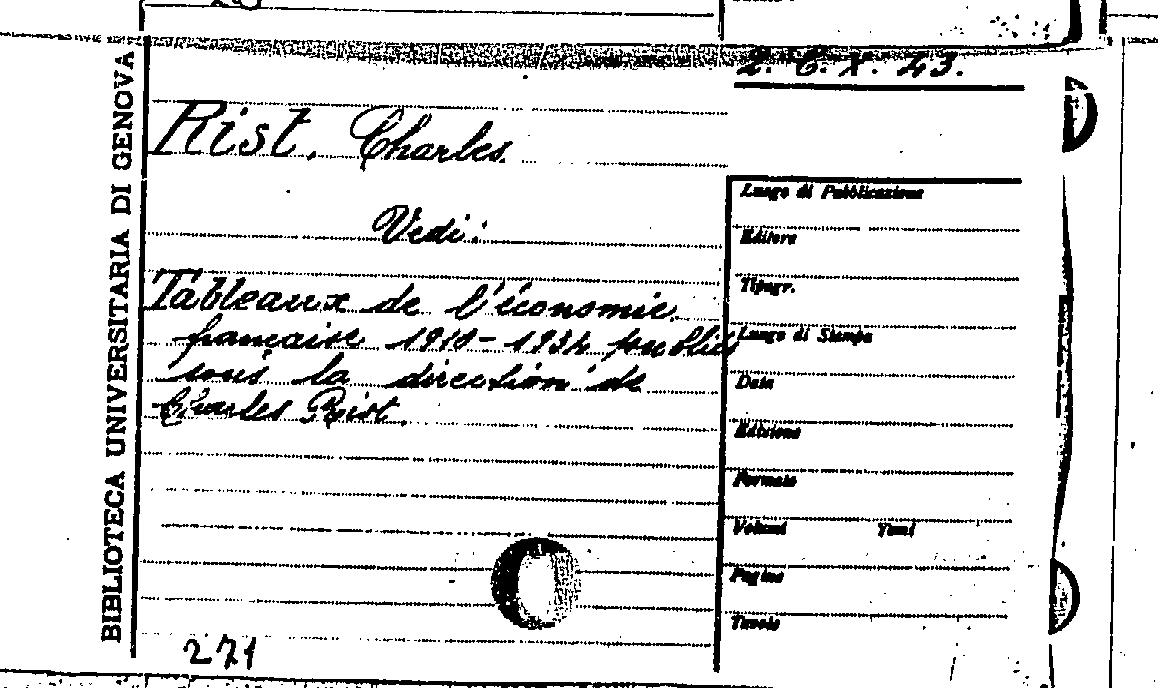 BIBLIOTECA UNIVERSITARIA DI GENOVA
2. C. X. 43.
Rist, Charles.
Vedi:
Tableaux de l'économie
française 1910-1934 publiés
sous la direction de
Charles Rist.
Luogo di Pubblicazione
Editore
Tipogr.
Luogo di Stampa
Data
Edizione
Formato
Volumi Tomi
Pagine
Tavole
271